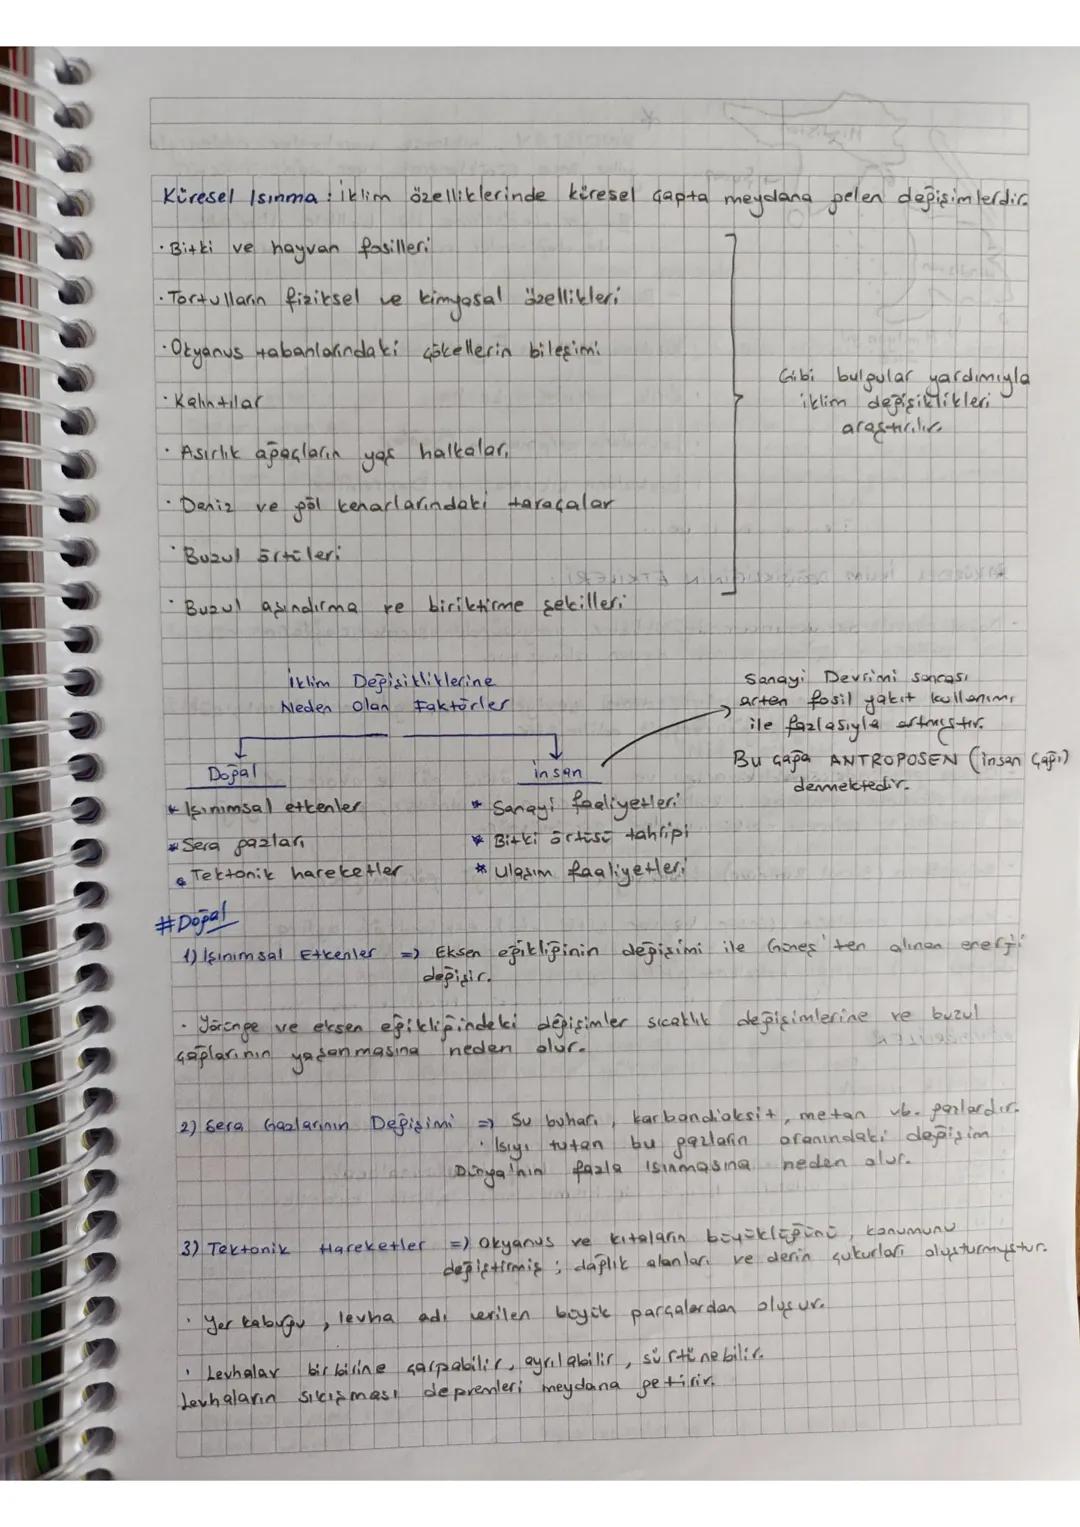 Küresel Isınma : İklim özelliklerinde küresel çapta meydana gelen değişimlerdir.
· Bitki ve hayvan fosilleri
· Tortulların fiziksel ve kimyasal özellikleri
· Okyanus tabanlarındaki çökellerin bileşimi
· Kalıntılar
· Asırlık ağaçların yaş halkaları
· Deniz ve göl kenarlarındaki taraçalar
· Buzul örtüleri
· Buzul aşındırma ve biriktirme şekilleri
Gibi bulgular yardımıyla
iklim değişiklikleri
araştırılır.
İklim Değişikliklerine
Neden Olan Faktörler
Doğal
* Işınımsal etkenler
* Sera gazları
* Tektonik hareketler
insan
* Sanayi faaliyetleri
* Bitki örtüsü tahripi
* Ulaşım faaliyetleri
Sanayi Devrimi sonrası
artan fosil yakıt kullanımı
ile fazlasıyla artmıştır.
Bu çağa ANTROPOSEN (insan çağı)
denmektedir.
#Doğal
1) Işınımsal Etkenler => Eksen eğikliğinin değişimi ile Güneş'ten alınan enerji
değişir.
· Yörünge ve eksen eğikliğindeki değişimler sıcaklık değişimlerine ve buzul
çağlarının yaşanmasına neden olur.
2) Sera Gazlarının Değişimi => Su buharı, karbondioksit, metan vb. gazlardır.
· Isıyı tutan bu gazların oranındaki değişim
Dünya'nın fazla ısınmasına neden olur.
3) Tektonik Hareketler => Okyanus ve kıtaların büyüklüğünü, konumunu
değiştirmiş ; dağlık alanları ve derin çukurları oluşturmuştur.
· Yer kabuğu, levha adı verilen büyük parçalardan oluşur.
· Levhalar birbirine çarpabilir, ayrılabilir, sürtünebilir.
Levhaların sıkışması depremleri meydana getirir.